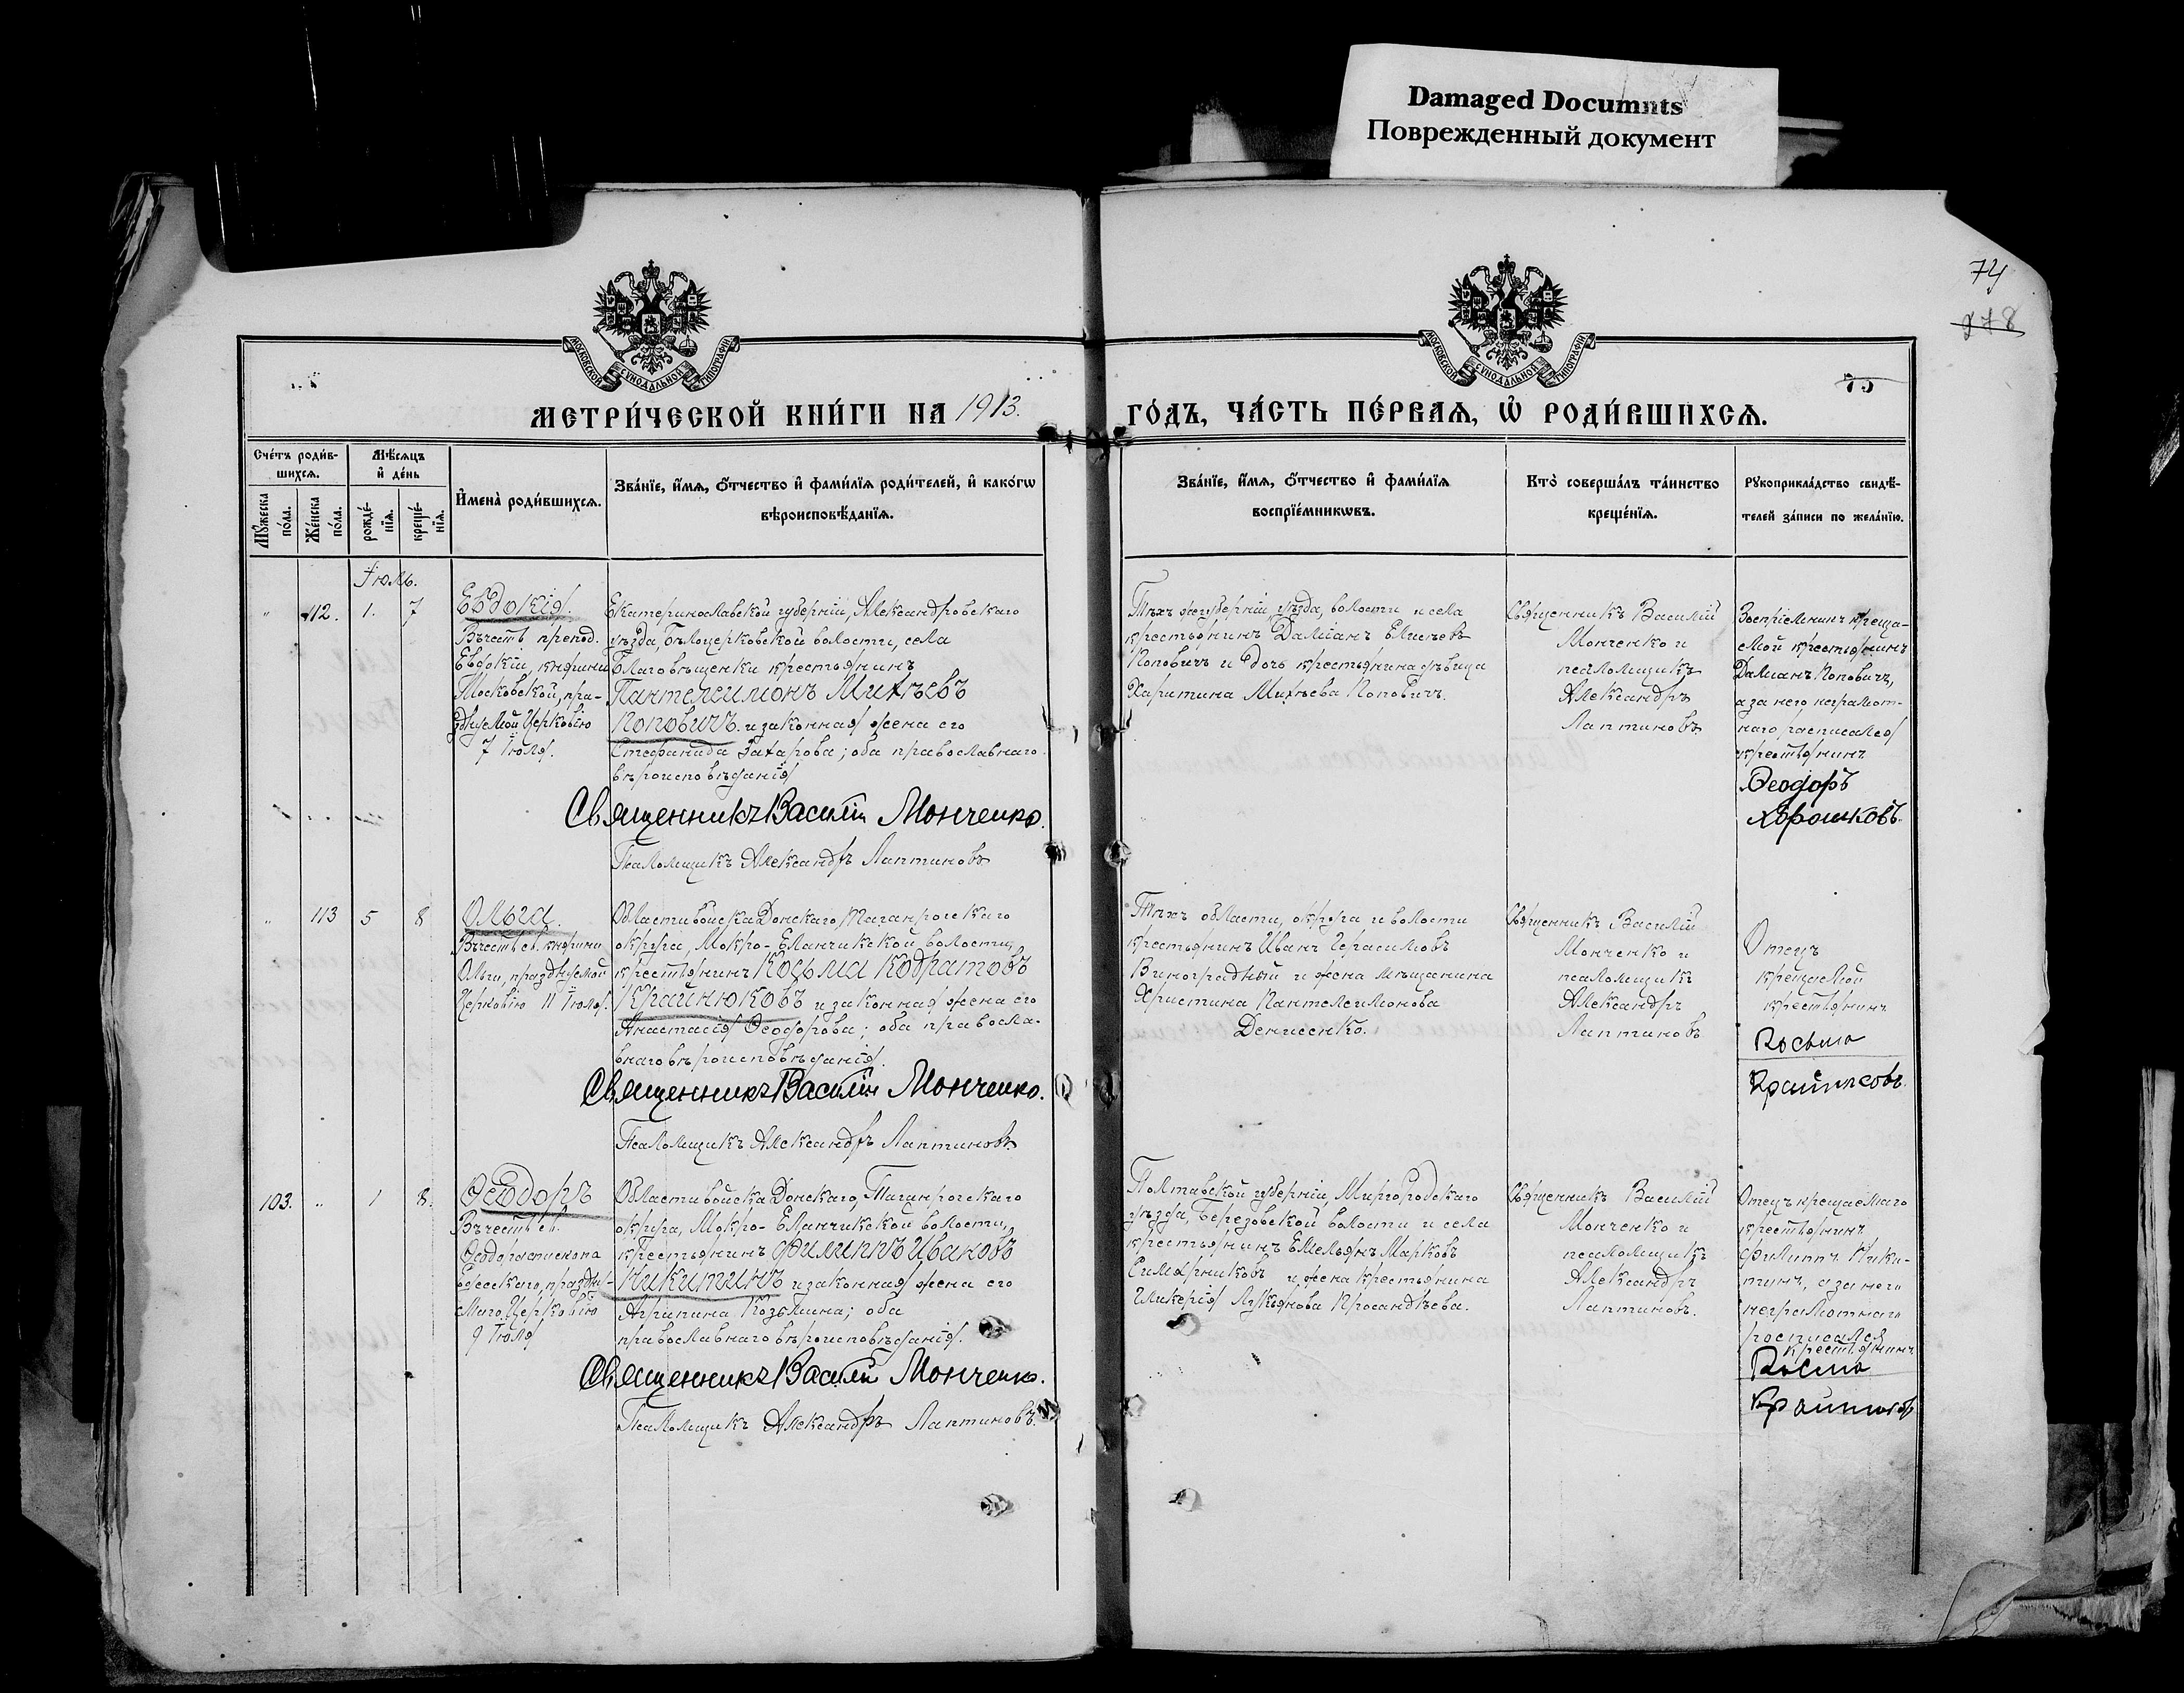 Damaged Documnts
Поврежденный документ
74
178
75
МОСКОВСКОЙ СѴНОДАЛЬНОЙ ТИПОГРАФІИ
МОСКОВСКОЙ СѴНОДАЛЬНОЙ ТИПОГРАФІИ
МЕТРИ́ЧЕСКОЙ КНИ́ГИ НА 1913.
ГО́ДЪ, ЧА́СТЬ ПЕ́РВАЯ, Ѡ҆ РОДИ́ВШИХСЯ.
Сче́тъ роди́в-
шихся.
Мѣ́сяцъ
и҆ де́нь
Мꙋ́жеска
по́ла.
Же́нска
по́ла.
рожде́-
нїя.
креще́-
нїя.
И҆мена̀ роди́вшихся.
Зва́нїе, и҆́мя, ѻ҆́тчество и҆ фами́лїя роди́телей, и҆ како́гѡ
вѣроисповѣ́данїя.
Зва́нїе, и҆́мя, ѻ҆́тчество и҆ фами́лїя
воспрїе́мникѡвъ.
Кто̀ соверша́лъ та́инство
креще́нїя.
Рꙋкоприкла́дство свидѣ́-
телей за́писи по жела́нїю.
Іюль.
" 112. 1. 7
Евдокія.
Въ честь препод.
Евдокіи, княгини
Московской, пра-
зднуемой Церковію
7 Іюля.
Екатеринославской губерніи, Александровскаго
уѣзда, Бѣлоцерковской волости, села
Благовѣщенки крестьянинъ
Пантелеимонъ Михѣевъ
Поповичъ и законная жена его
Стефанида Захарова; оба православнаго
вѣроисповѣданія
Священникъ Василій Монченко.
Псаломщикъ Александръ Лаптиновъ
Тѣхъ же губерніи, уѣзда, волости и села
крестьянинъ Даміанъ Елисѣевъ
Поповичъ и дочь крестьянина дѣвица
Харитина Михѣева Поповичъ.
Священникъ Василій
Монченко и
псаломщикъ
Александръ
Лаптиновъ
Воспріемникъ креща-
емой крестьянинъ
Даміанъ Поповичъ,
а за него неграмот-
наго, расписался
крестьянинъ
Ѳеодоръ
Хорошковъ.
" 113 5 8
Ольга.
Въ честь св. княгини
Ольги, празднуемой
Церковію 11 Іюля.
Области войска Донскаго, Таганрогскаго
округа, Мокро-Еланчикской волости,
крестьянинъ Косьма Кодратовъ
Крайнюковъ и законная жена его
Анастасія Ѳеодорова; оба правосла-
внаго вѣроисповѣданія.
Священникъ Василій Монченко.
Псаломщикъ Александръ Лаптиновъ
Тѣхъ области, округа и волости
крестьянинъ Иванъ Герасимовъ
Виноградный и жена мѣщанина
Христина Пантелеимонова
Денисенко.
Священникъ Василій
Монченко и
псаломщикъ
Александръ
Лаптиновъ
Отецъ
крещаемой
крестьянинъ
Косьма
103. " 1 8.
Ѳеодоръ
Въ честь св.
Ѳеодора епископа
Едесскаго, праздну-
емаго Церковію
9 Іюля
Области войска Донскаго, Таганрогскаго
округа, Мокро-Еланчикской волости,
крестьянинъ Филиппъ Ивановъ
Никитинъ и законная жена его
Агрипина Козьмина; оба
православнаго вѣроисповѣданія.
Священникъ Василій Монченко.
Псаломщикъ Александръ Лаптиновъ.
Полтавской губерніи, Миргородскаго
уѣзда, Березовской волости и села
крестьянинъ Емельянъ Марковъ
и жена крестьянина
Гликерія Лукьянова Просандѣева.
Священникъ Василій
Монченко и
псаломщикъ
Александръ
Лаптиновъ.
Отецъ крещаемаго
крестьянинъ
Филиппъ Ники-
тинъ, а за него
неграмотнаго
росписался
крестьянинъ
Косма